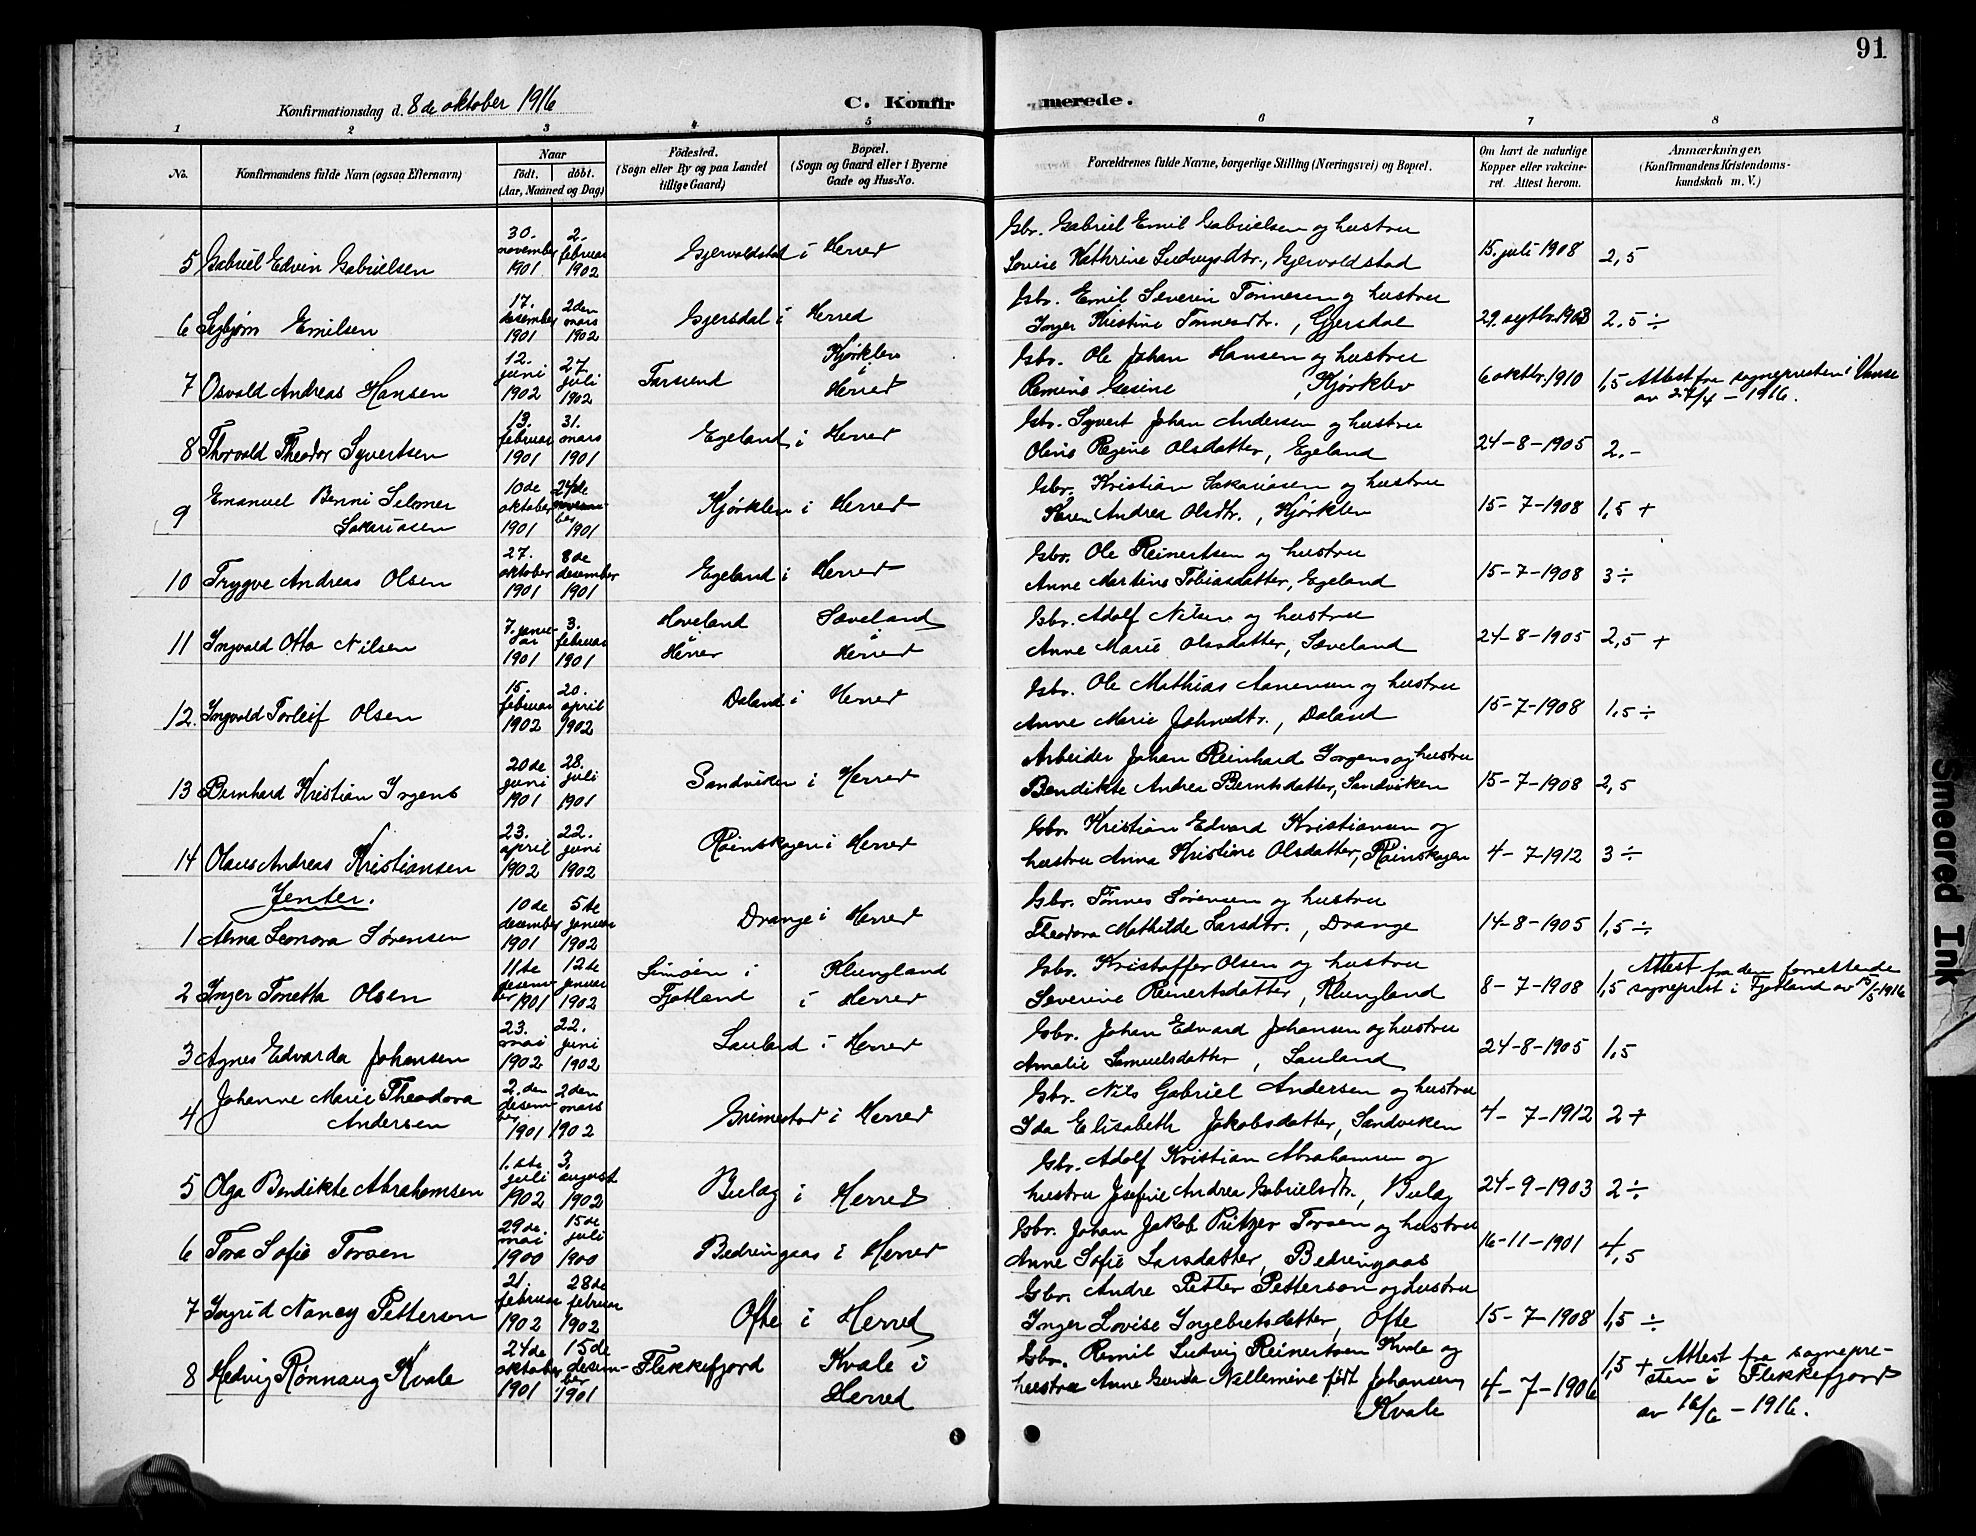 91
Konfirmationsdag d. 8de oktober 1916
C. Konfirmerede.
1 2 3 4 5 6 7 8
No.
Konfirmandens fulde Navn (ogsaa Efternavn)
Naar
født. døbt.
(Aar, Maaned og Dag)
Fødested.
(Sogn eller By og paa Landet
tillige Gaard)
Bopæl.
(Sogn og Gaard eller i Byerne
Gade og Hus-No.
Forældrenes fulde Navne, borgerlige Stilling (Næringsvei) og Bopæl.
Om havt de naturlige
Kopper eller vakcine-
ret. Attest herom.
Anmærkninger.
(Konfirmandens Kristendoms-
kundskab m. V.)
5 Gabriel Edvin Gabrielsen 30. november 1901 2. februar 1902 Gjervoldstad i Herred
Gbr. Gabriel Emil Gabrielsen og hustru
Lovise Kathrine Ludvigsdtr., Gjervoldstad 15. juli 1908 2,5
6 Sigbjørn Emilsen 17. desember 1901 2den mars 1902 Gjersdal i Herred
Gbr. Emil Severin Tønnesen og hustru
Inger Kristine Tønnesdtr., Gjersdal 29. septbr. 1903 2,5 ÷
7 Osvald Andreas Hansen 12. juni 1902 27. juli 1902 Farsund Kjørklev i Herred
Gbr. Ole Johan Hansen og hustru
Gesine, Kjørklev 6 oktbr. 1910 1,5 Attest fra sognepresten i Vanse
av 27/4 - 1916.
8 Thorvald Theodor Syvertsen 13. februar 1901 31. mars 1901 Egeland i Herred
Gbr. Syvert Johan Andersen og hustru
Oline Regine Olsdatter, Egeland 24-8-1905 2.-
9 Emanuel Benni Selmer
Sakariasen 10de oktober 1901 24de november 1901 Kjørklev i Herred
Gbr. Kristian Sakariasen og hustru
Karen Andrea Olsdtr., Kjørklev 15-7-1908 1,5 +
10 Trygve Andreas Olsen 27. oktober 1901 8de desember 1901 Egeland i Herred
Gbr. Ole Reinertsen og hustru
Anne Martine Tobiasdatter, Egeland 15-7-1908 3 ÷
11 Ingvald Otto Nilsen 7. januar 1901 3. februar 1901 Hoveland i Herred Sæveland i Herred
Gbr. Adolf Nilsen og hustru
Anne Marie Olsdatter, Sæveland 24-8-1905 2,5 +
12. Ingvald Torleif Olsen 15. februar 1902 20. april 1902 Daland i Herred
Gbr. Ole Mathias Aanensen og hustru
Anne Marie Jahnsdtr., Daland 15-7-1908 1,5 ÷
13 Bernhard Kristian Irgens 20de juni 1901 28. juli 1901 Sandviken i Herred
Arbeider Johan Reinhard Irgens og hustru
Bendikte Andrea Berntsdatter, Sandviken 15-7-1908 2,5
14 Olaus Andreas Kristiansen 23. april 1902 22. juni 1902 Røinskogen i Herred
Gbr. Kristian Edvard Kristiansen og
hustru Anna Kristine Olsdatter, Røinskogen 4-7-1912 3 ÷
Jenter.
1 Alma Leonora Sørensen 10de desember 1901 5te januar 1902 Drange i Herred
Gbr. Tønnes Sørensen og hustru
Theodora Mathilde Larsdtr., Drange 14-8-1905 1,5 ÷
2 Inger Tonetta Olsen 11te desember 1901 12te januar 1902 Simoen i Fjotland Klungland i Herred
Gbr. Kristoffer Olsen og hustru
Severine Reinertsdatter, Klungland 8-7-1908 1,5 Attest fra den forrettende
sogneprest i Fjotland av 15/5-1916
3 Agnes Edvarda Johansen 23. mai 1902 22. juni 1902 Lauland i Herred
Gbr. Johan Edvard Johansen og hustru
Amalie Samuelsdatter, Lauland 24-8-1905 1,5
4 Johanne Marie Theodora
Andersen 2.den desember 1901 2den mars 1902 Grimestad i Herred
Gbr. Nils Gabriel Andersen og hustru
Ida Elisabeth Jakobsdatter, Sandviken 4-7-1912 2 +
5 Olga Bendikte Abrahamsen 1.ste juli 1902 3. august 1902 Buløy i Herred
Gbr. Adolf Kristian Abrahamsen og
hustru Josefine Andrea Gabrielsdtr., Buløy 24-9-1903 2 ÷
6 Tora Sofie Torsen 29de mai 1900 15de juli 1900 Bedringaas i Herred
Gbr. Johan Jakob Pritzer Torsen og hustru
Anne Sofie Larsdatter, Bedringaas 16-11-1901 4,5
7 Ingrid Nancy Petterson 21. februar 1902 28de februar 1902 Ofte i Herred
Gbr. Andre Petter Petterson og hustru
Inger Lovise Ingebretsdatter, Ofte 15-7-1908 1,5 ÷
8 Hedvig Rønnaug Kvale 24de oktober 1901 15de desember 1901 Flekkefjord Kvale i Herred
Gbr. Remil Ludvig Reinertsen Kvale og
hustru Anne Gunda Nillemine født Johansen,
Kvale 4-7-1906 1,5 + Attest fra sognepre-
sten i Flekkefjord
av 16/6 - 1916.
Smeared Ink